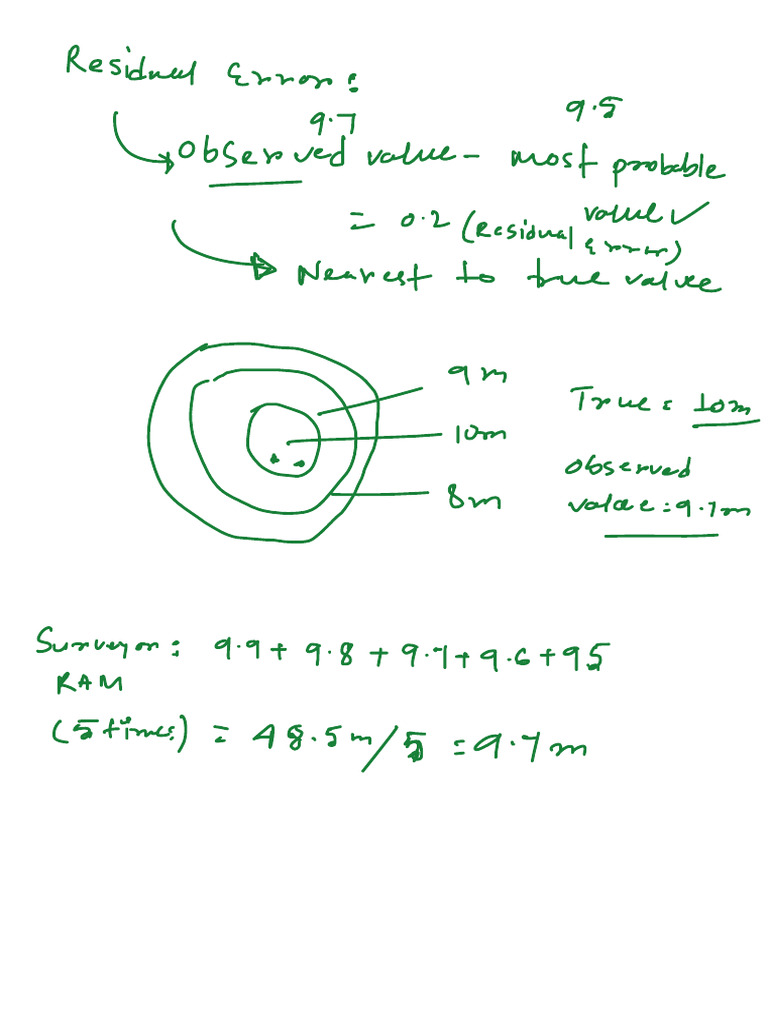 Residual Error:
9.7 9.5
Observed value - most probable
value ✓
= 0.2 (Residual Error)
Nearest to true value
9m
10m
8m
True = 10m
Observed
value = 9.7m
Surveyor: 9.9 + 9.8 + 9.7 + 9.6 + 95
RAM
(5 times) = 48.5m/5 = 9.7m